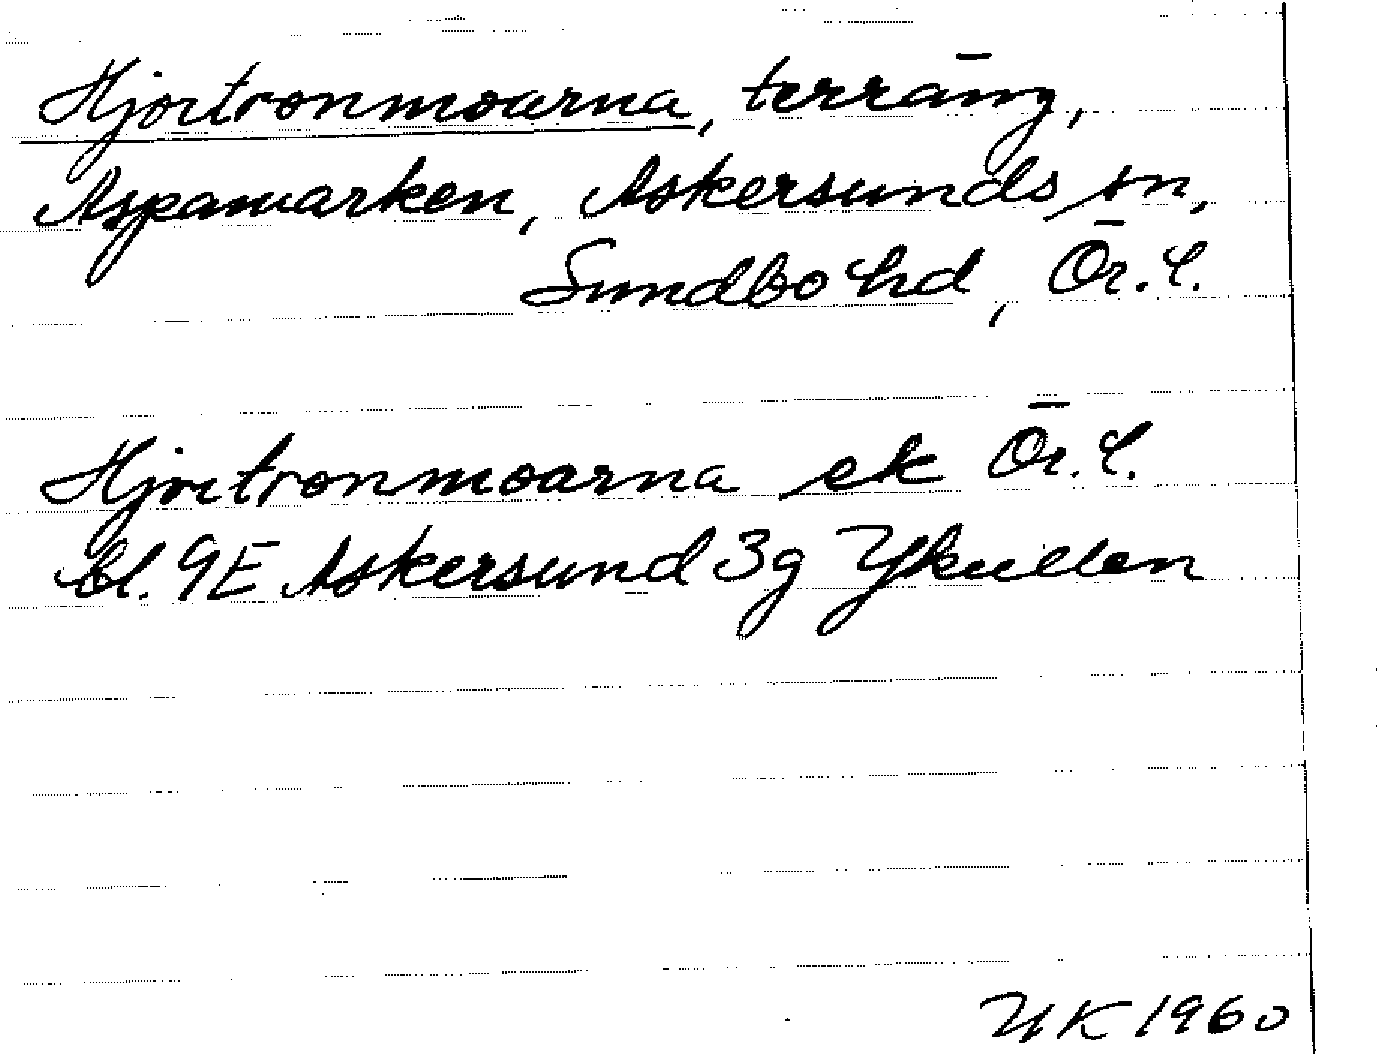 Hjortronmoarna, terräng,
Aspamarken, Askersunds sn,
Sundbo hd, Ör. l.
Hjortronmoarna ek Ör. l.
bl. 9E Askersund 3g Ykullen
YK 1960